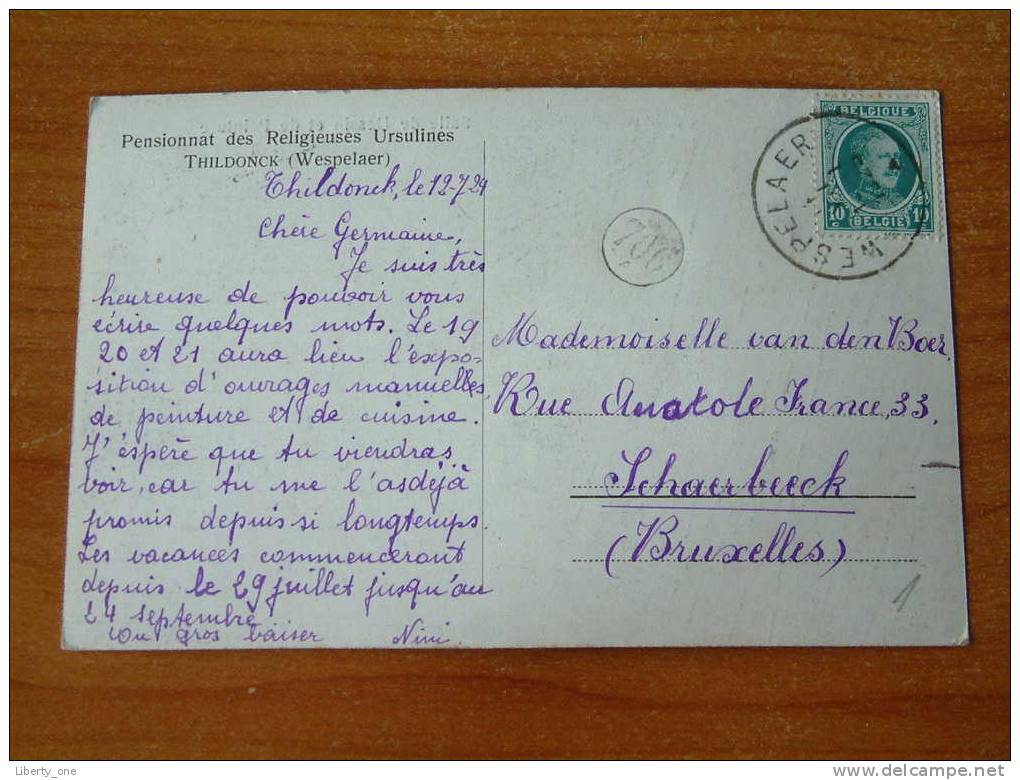 Pensionnat des Religieuses Ursulines
THILDONCK (Wespelaer)
Thildonck, le 12-7-29
Chère Germaine,
Je suis très
heureuse de pouvoir vous
écrire quelques mots. Le 19
20 et 21 aura lieu l'expo-
sition d'ouvrages manuelles,
de peinture et de cuisine.
J'éspère que tu viendras
voir, car tu me l'as déjà
promis depuis si longtemps.
Les vacances commenceront
depuis le 29 juillet jusqu'au
24 septembre
Un gros baiser Nini.
BELGIQUE
10 c 10 c
BELGIE
WESPELAER
706
Mademoiselle van den Boer,
Rue Anatole France, 33.
Schaerbeeck
(Bruxelles)
1
Liberty_one
www.delcampe.net